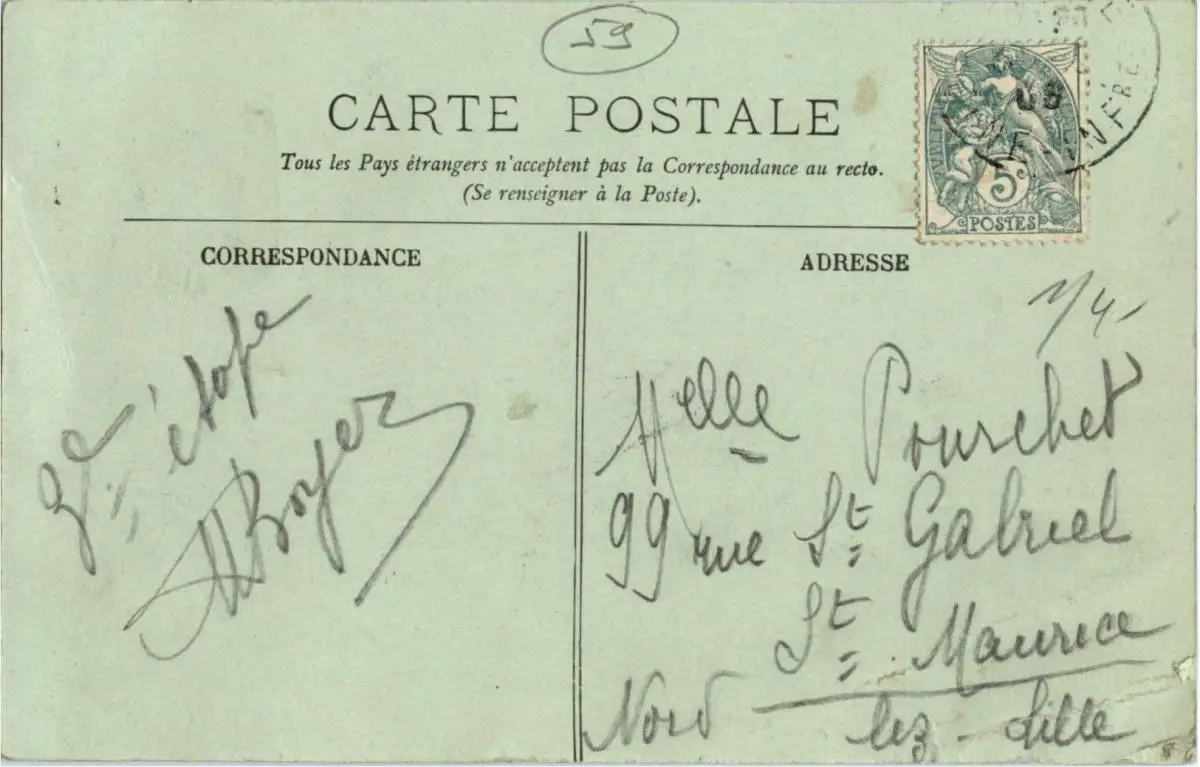 59
CARTE POSTALE
Tous les Pays étrangers n'acceptent pas la Correspondance au recto.
(Se renseigner à la Poste).
5c
POSTES
CORRESPONDANCE
ADRESSE
étape
Boyer
1/4-
Melle Pourchet
99 rue St Gabriel
St Maurice
lez-Lille
Nord